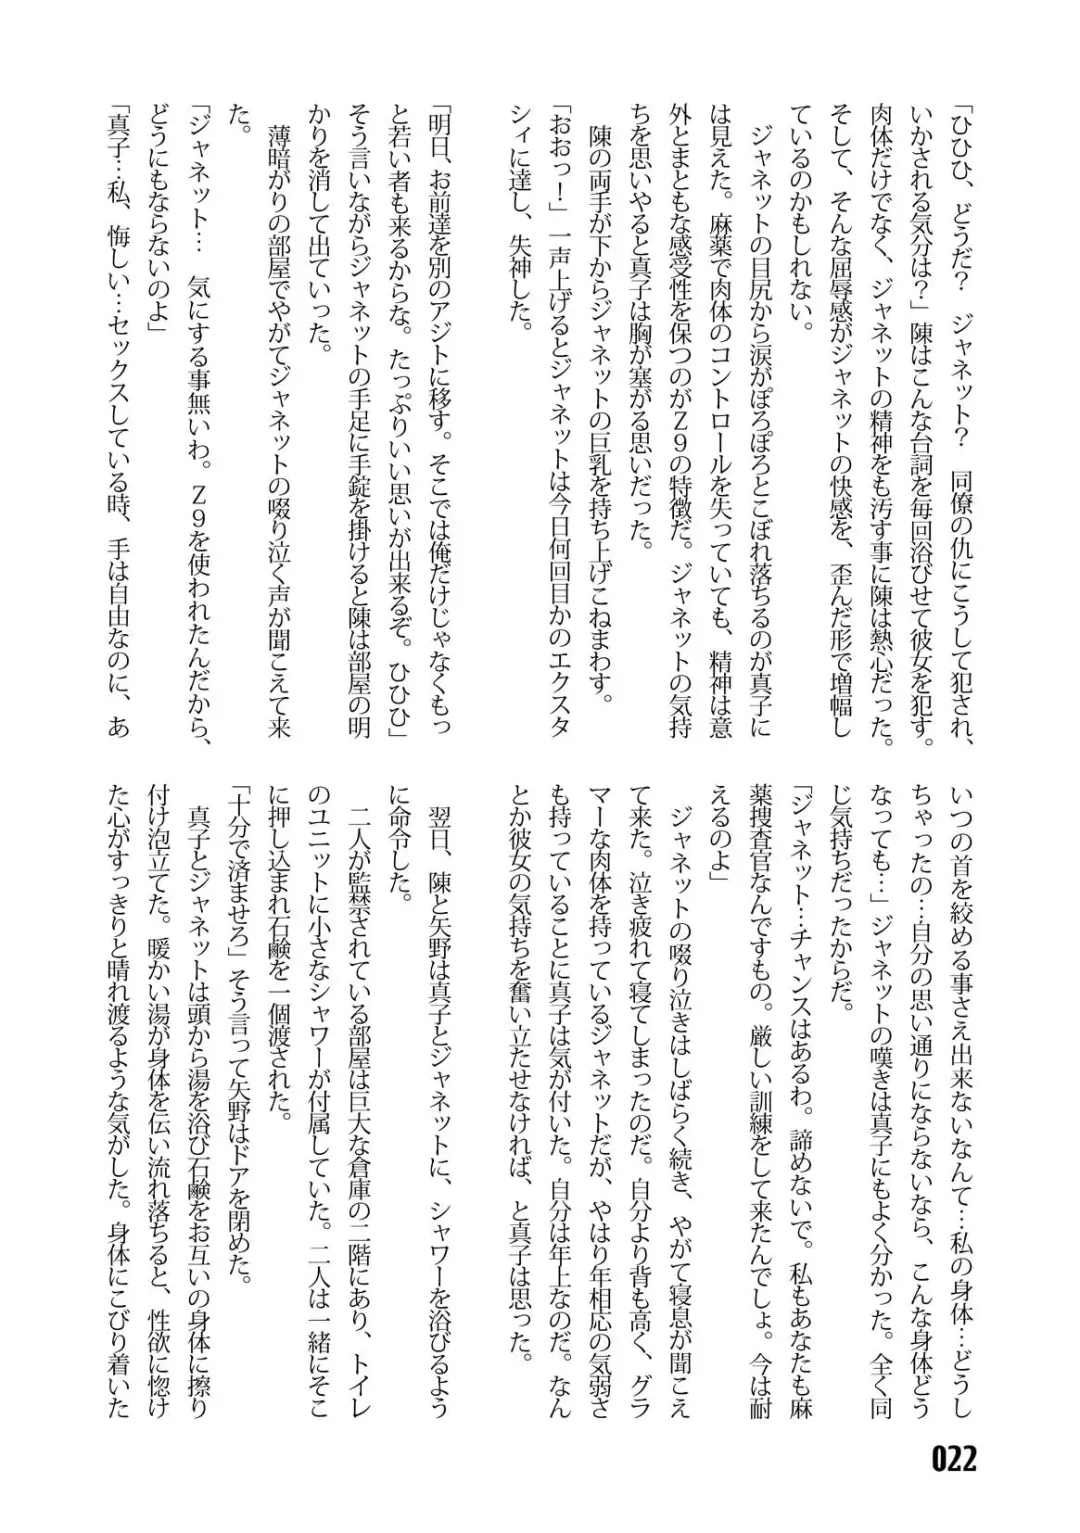 「ひひひ、どうだ？　ジャネット？　同僚の仇にこうして犯され、
いかされる気分は？」陳はこんな台詞を毎回浴びせて彼女を犯す。
肉体だけでなく、ジャネットの精神をも汚す事に陳は熱心だった。
そして、そんな屈辱感がジャネットの快感を、歪んだ形で増幅し
ているのかもしれない。
　ジャネットの目尻から涙がぽろぽろとこぼれ落ちるのが真子に
は見えた。麻薬で肉体のコントロールを失っていても、精神は意
外とまともな感受性を保つのがＺ９の特徴だ。ジャネットの気持
ちを思いやると真子は胸が塞がる思いだった。
　陳の両手が下からジャネットの巨乳を持ち上げこねまわす。
「おおっ！」一声上げるとジャネットは今日何回目かのエクスタ
シィに達し、失神した。
「明日、お前達を別のアジトに移す。そこでは俺だけじゃなくもっ
と若い者も来るからな。たっぷりいい思いが出来るぞ。ひひひ」
そう言いながらジャネットの手足に手錠を掛けると陳は部屋の明
かりを消して出ていった。
　薄暗がりの部屋でやがてジャネットの啜り泣く声が聞こえて来
た。
「ジャネット…　気にする事無いわ。Ｚ９を使われたんだから、
どうにもならないのよ」
「真子…私、悔しい…セックスしている時、手は自由なのに、あ
いつの首を絞める事さえ出来ないなんて…私の身体…どうし
ちゃったの…自分の思い通りにならないなら、こんな身体どう
なっても…」ジャネットの嘆きは真子にもよく分かった。全く同
じ気持ちだったからだ。
「ジャネット…チャンスはあるわ。諦めないで。私もあなたも麻
薬捜査官なんですもの。厳しい訓練をして来たんでしょ。今は耐
えるのよ」
　ジャネットの啜り泣きはしばらく続き、やがて寝息が聞こえ
て来た。泣き疲れて寝てしまったのだ。自分より背も高く、グラ
マーな肉体を持っているジャネットだが、やはり年相応の気弱さ
も持っていることに真子は気が付いた。自分は年上なのだ。なん
とか彼女の気持ちを奮い立たせなければ、と真子は思った。
　翌日、陳と矢野は真子とジャネットに、シャワーを浴びるよう
に命令した。
　二人が監禁されている部屋は巨大な倉庫の二階にあり、トイレ
のユニットに小さなシャワーが付属していた。二人は一緒にそこ
に押し込まれ石鹸を一個渡された。
「十分で済ませろ」そう言って矢野はドアを閉めた。
　真子とジャネットは頭から湯を浴び石鹸をお互いの身体に擦り
付け泡立てた。暖かい湯が身体を伝い流れ落ちると、性欲に惚け
た心がすっきりと晴れ渡るような気がした。身体にこびり着いた
022